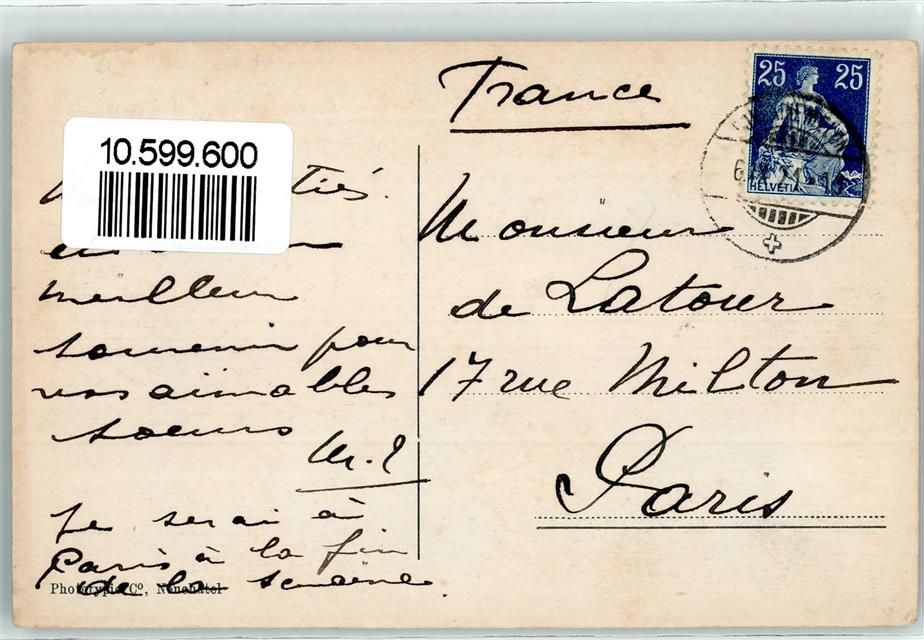 10.599.600
tiés.
meilleur
souvenir pour
vos aimables
sœurs
Je serai à
Paris à la fin
de la semaine
Phototypie Co, Neuchâtel
France
25 25
HELVETIA
Monsieur
de Latour
17 rue Milton
Paris